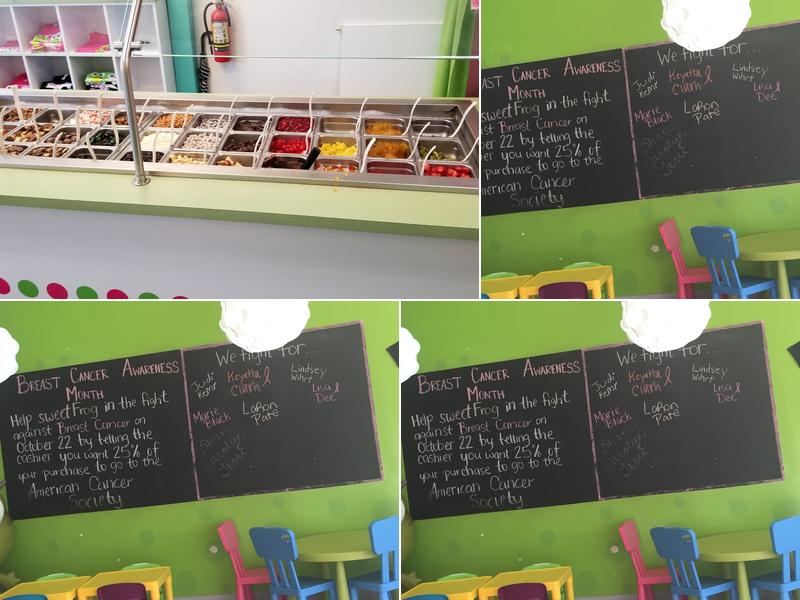 We fight for...
AST CANCER AWARENESS
MONTH
sweetFrog in the fight
st Breast Cancer on
ber 22 by telling the
er you want 25% of
purchase to go to the
merican Cancer
Society
Judi
Keyatta
Clark
Lindsey
Lisa &
Dee
Marie
Black
LaRon
Pate
We fight for...
BREAST CANCER AWARENESS
MONTH
Help sweetFrog in the fight
against Breast Cancer on
October 22 by telling the
cashier you want 25% of
your purchase to go to the
American Cancer
Society
Judi
Keyatta
Clark
Lindsey
Lisa &
Dee
Marie
Black
LaRon
Pate
We fight for...
BREAST CANCER AWARENESS
MONTH
Help sweetFrog in the fight
against Breast Cancer on
October 22 by telling the
cashier you want 25% of
your purchase to go to the
American Cancer
Society
Judi
Keyatta
Clark
Lindsey
Lisa &
Dee
Marie
Black
LaRon
Pate